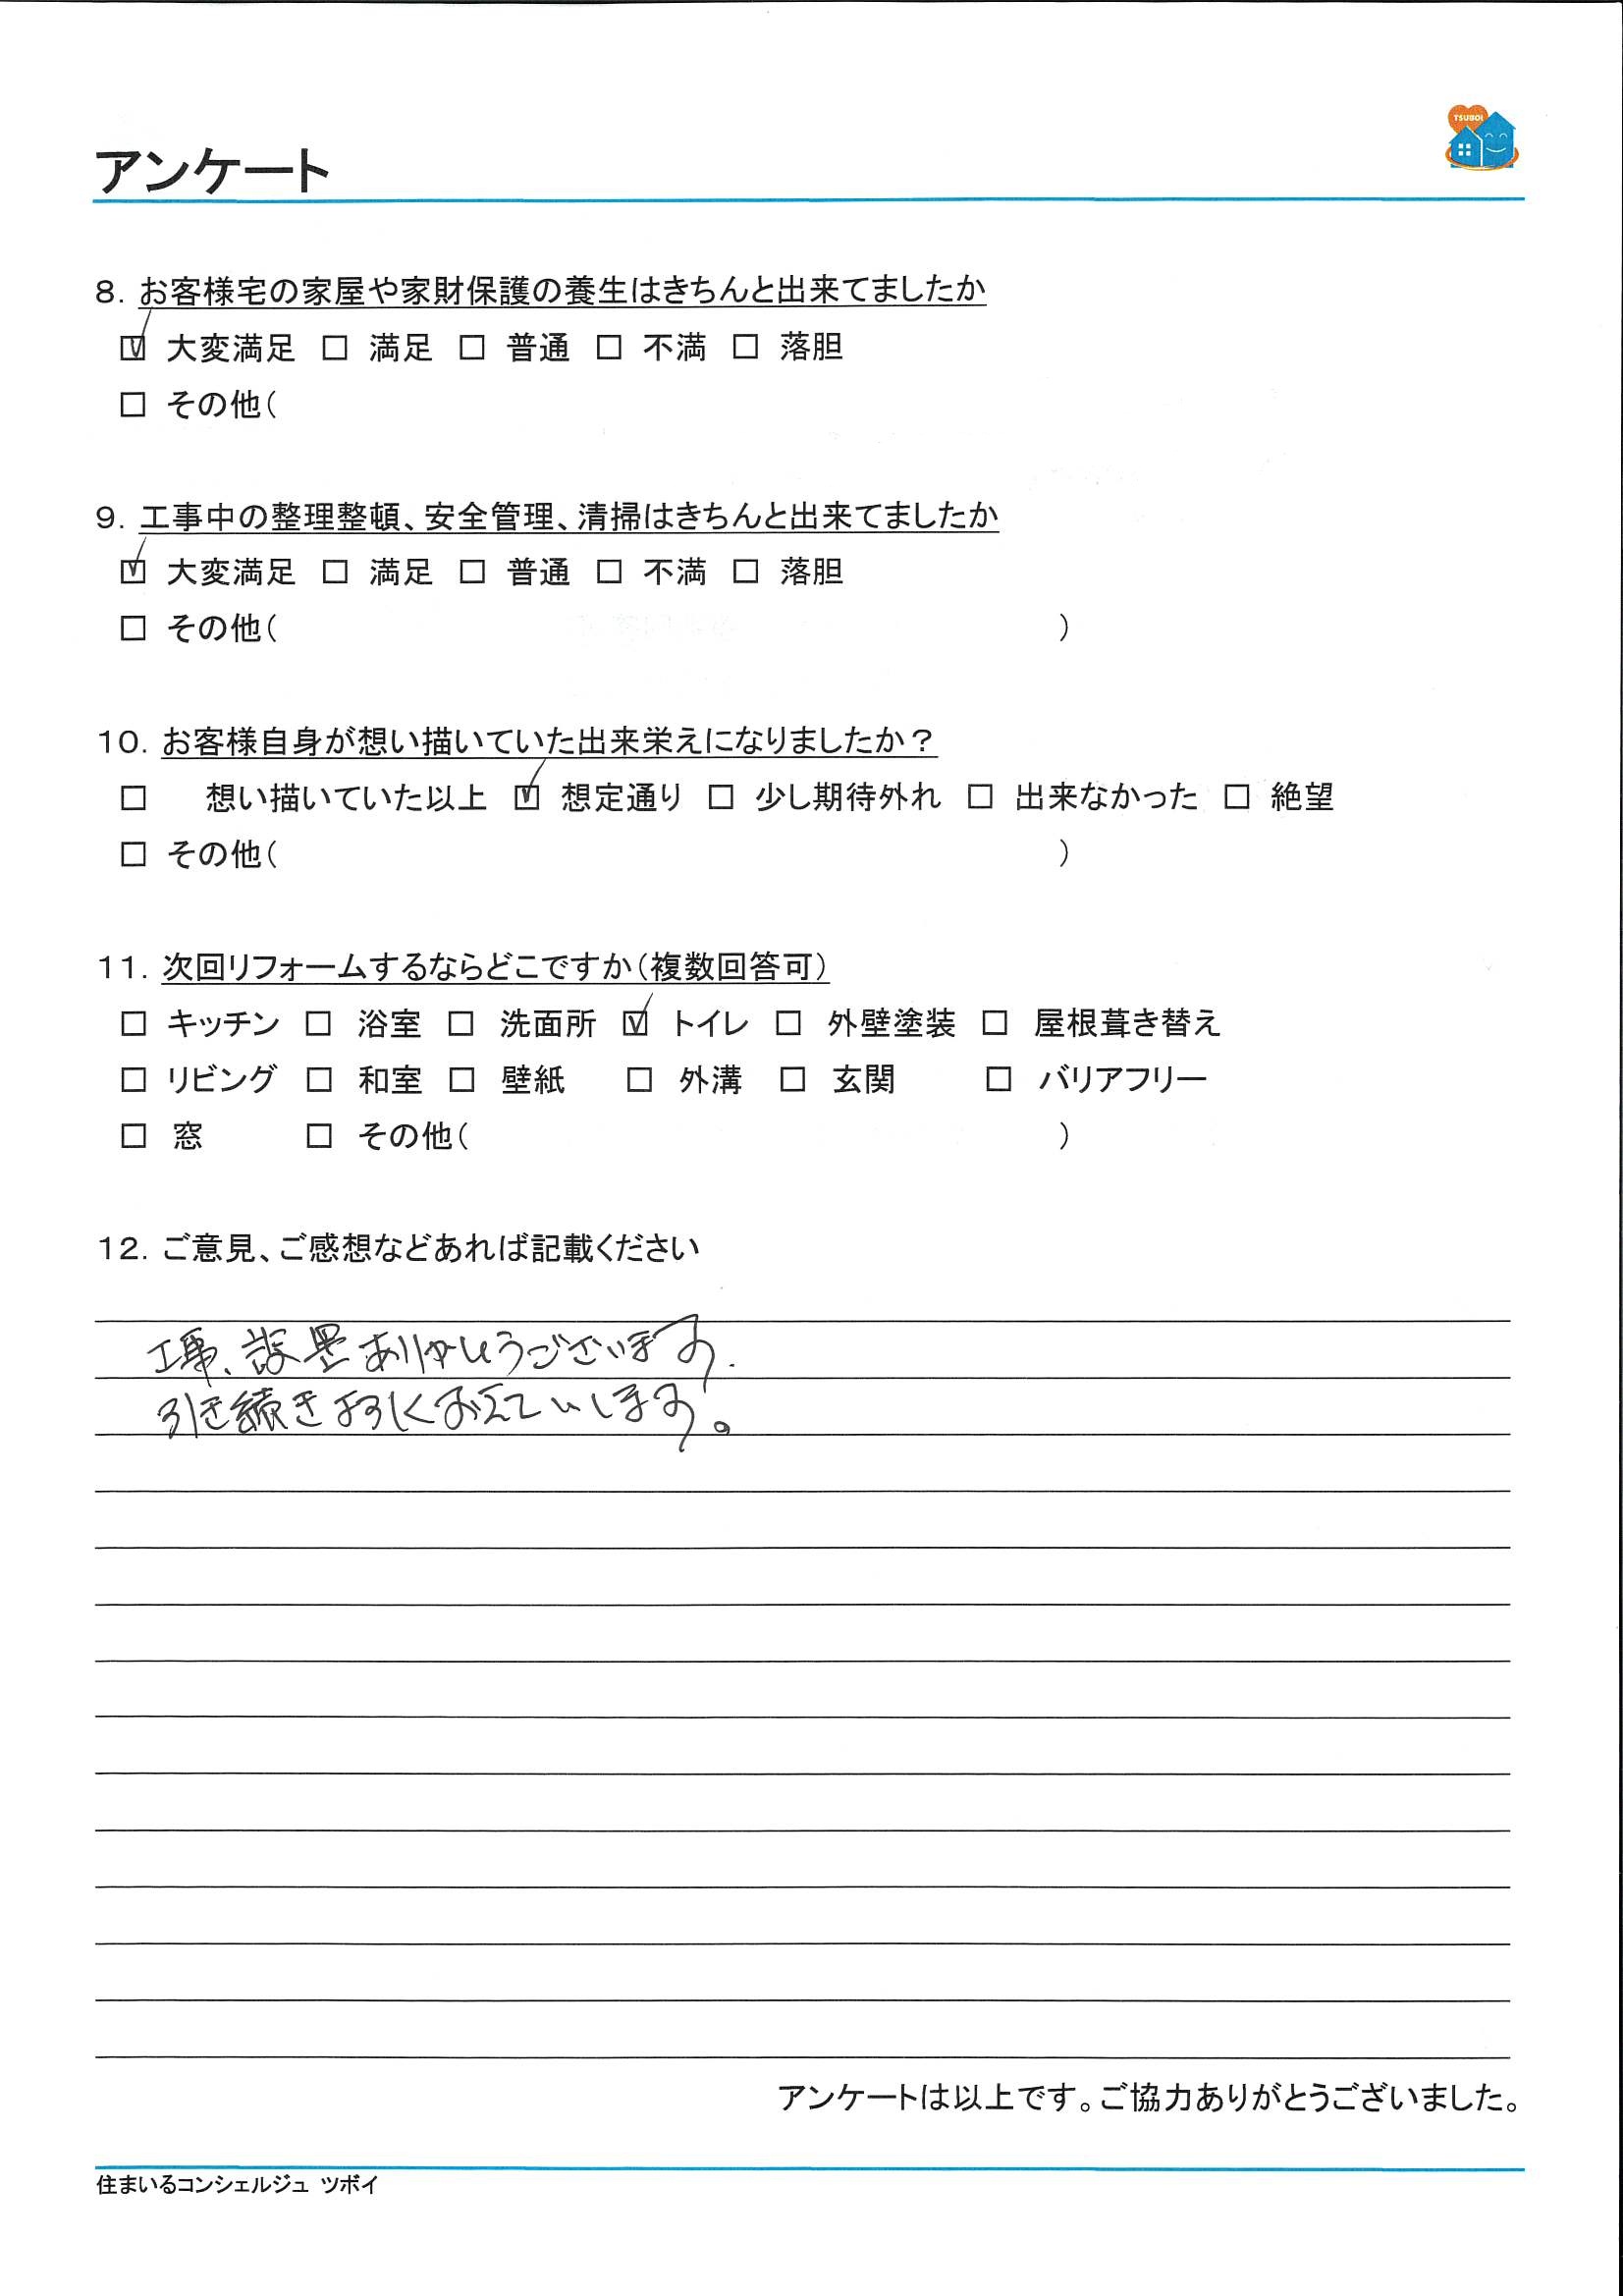 TSUBOI
アンケート
8. お客様宅の家屋や家財保護の養生はきちんと出来てましたか
☑ 大変満足 □ 満足 □ 普通 □ 不満 □ 落胆
□ その他(
9. 工事中の整理整頓、安全管理、清掃はきちんと出来てましたか
☑ 大変満足 □ 満足 □ 普通 □ 不満 □ 落胆
□ その他( )
10. お客様自身が想い描いていた出来栄えになりましたか？
□ 想い描いていた以上 ☑ 想定通り □ 少し期待外れ □ 出来なかった □ 絶望
□ その他( )
11. 次回リフォームするならどこですか(複数回答可)
□ キッチン □ 浴室 □ 洗面所 ☑ トイレ □ 外壁塗装 □ 屋根葺き替え
□ リビング □ 和室 □ 壁紙 □ 外溝 □ 玄関 □ バリアフリー
□ 窓 □ その他( )
12. ご意見、ご感想などあれば記載ください
工事、設置ありがとうございます.
引き続きよろしくおねがいします。
アンケートは以上です。ご協力ありがとうございました。
住まいるコンシェルジュ ツボイ